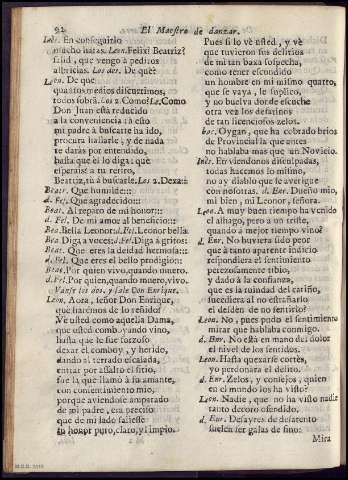 92
El Maestro de danzar.
Inès. En conseguirlo
mucho haràs. Leon. Felix? Beatriz?
salid, que vengo à pediros
albricias. Los dos. De què?
Leon. De que
quantos medios discurrimos,
todos sobrã. Los 2. Como? Le. Como
Don Juan està reducido
a la conveniencia: tã esto
mi padre à buscarte ha ido,
procura hallarle; y de nada
te daràs por entendido,
hasta que èl lo diga: què
esperais? a tu retiro,
Beatriz, tu à buscarle. Los 2. Dexa::
Beat. Que humilde:::
d. Fel. Que agradecido:::
Beat. Al reparo de mi honor:::
d. Fel. De mi amor al beneficio:::
Bea. Bella Leonor: d. Fel. Leonor bella
Bea. Diga a voces: d. Fel. Diga à gritos:
Beat. Que eres la deidad hermosa:::
d. Fel. Que eres el bello prodigio:
Beat. Por quien vivo, quando muero.
d. Fel. Por quien, quando muero, vivo.
Vanse los dos, y sale Don Enrique.
Leon. Aora, señor Don Enrique,
què haremos de lo reñido?
Ve usted como aquella Dama,
que usted comboyando vino,
hasta que le fue forzoso
dexar el comboy, y herido,
dando al terrado escalada,
entrar por assalto el sitio,
fue la que llamò à su amante,
con conocimiento mio,
porque aviendose amparado
de mi padre, era preciso
que de mi lado saliesse
su honor puro, claro, y limpio.
Pues si lo vè usted, y vè
que tuvieron sus delirios
de mi tan baxa sospecha,
como tener escondido
un hombre en mi mismo quarto,
que se vaya, le suplico,
y no buelva donde escuche
otra vez los desatinos
de tan licenciosos zelos.
Inès. Oygan, que ha cobrado brios
de Provincial la que antes
no hablaba mas que un Novicio.
Inès. En viendonos disculpadas,
todas hacemos lo mismo,
no ay diablo que se averigue
con nosotras. d. Enr. Dueño mio,
mi bien, mi Leonor, señora.
Leo. A muy buen tiempo ha venido
el alhago, pero à un triste,
quando a mejor tiempo vino?
d. Enr. No huviera sido peor
que à tanto aparente indicio
respondiera el sentimiento
perezosamente tibio,
y dado à la confianza,
que es la ruindad del cariño,
sucediera al no estrañarlo
el desdèn de no sentirlo?
Leon. No, pues pudo el sentimiento
mirar que hablaba conmigo.
d. Enr. No està en mano del dolor
el nivel de los sentidos.
Leon. Hasta quexarse cortès,
yo perdonara el delito.
d. Enr. Zelos, y consejos, quien
en el mundo los ha visto?
Leon. Nadie, que no ha visto nadie
tanto decoro ofendido.
d. Enr. Desayres de desatento
suelen ser galas de fino:
Mira